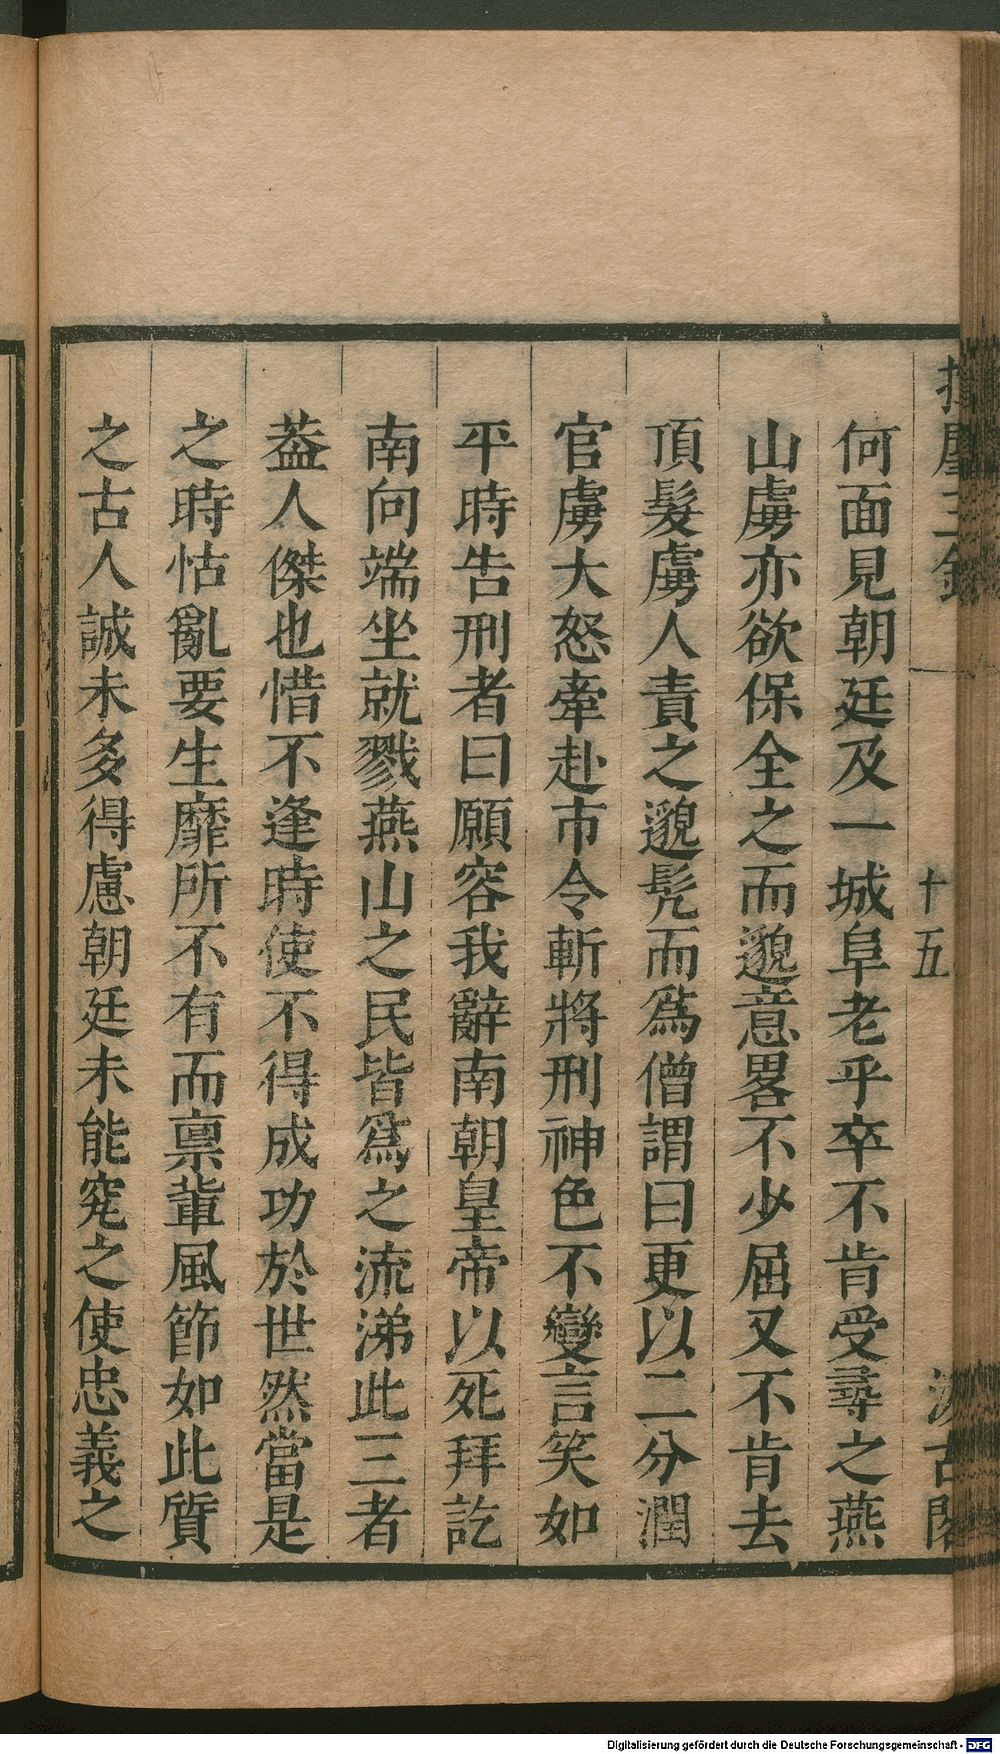 揮麈三錄
十五
汲古閣
何面見朝廷及一城阜老乎卒不肯受尋之燕
山虜亦欲保全之而邈意畧不少屈又不肯去
頂髮虜人責之邈髠而爲僧謂曰更以二分潤
官虜大怒牽赴市令斬將刑神色不變言笑如
平時告刑者曰願容我辭南朝皇帝以死拜訖
南向端坐就戮燕山之民皆爲之流涕此三者
葢人傑也惜不逢時使不得成功於世然當是
之時怙亂要生靡所不有而禀軰風節如此質
之古人誠未多得慮朝廷未能究之使忠義之
Digitalisierung gefördert durch die Deutsche Forschungsgemeinschaft - DFG